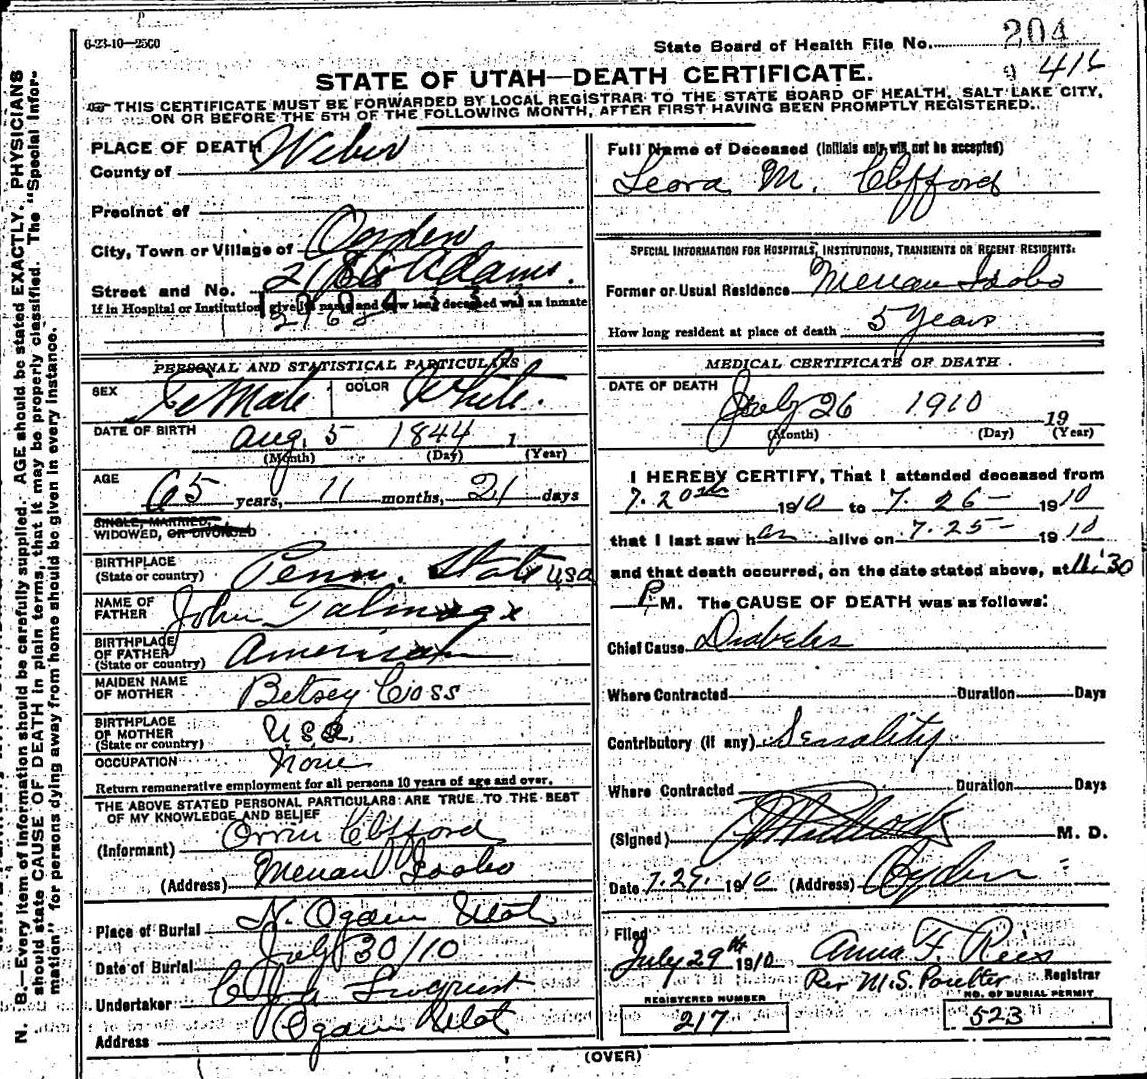 6-23-10—2500
State Board of Health File No. 204
416
STATE OF UTAH—DEATH CERTIFICATE.
THIS CERTIFICATE MUST BE FORWARDED BY LOCAL REGISTRAR TO THE STATE BOARD OF HEALTH, SALT LAKE CITY,
ON OR BEFORE THE 5TH OF THE FOLLOWING MONTH, AFTER FIRST HAVING BEEN PROMPTLY REGISTERED.
PLACE OF DEATH
County of Weber
Precinct of
City, Town or Village of Ogden
Street and No. Adams.
If in Hospital or Institution give its name and how long deceased was an inmate
2168
PERSONAL AND STATISTICAL PARTICULARS
SEX Female COLOR White.
DATE OF BIRTH Aug. 5 1844 1
(Month) (Day) (Year)
AGE 65 years, 11 months, 21 days
SINGLE, MARRIED,
WIDOWED, OR DIVORCED
BIRTHPLACE
(State or country) Penn. State USA
NAME OF
FATHER John
BIRTHPLACE
OF FATHER
(State or country) American
MAIDEN NAME
OF MOTHER Betsey Coss
BIRTHPLACE
OF MOTHER
(State or country) U.S.A.
OCCUPATION None
Return remunerative employment for all persons 10 years of age and over.
THE ABOVE STATED PERSONAL PARTICULARS ARE TRUE TO THE BEST
OF MY KNOWLEDGE AND BELIEF
(Informant) Orrin Clifford
(Address) Menan Idaho
Place of Burial N. Ogden Utah
Date of Burial July 30/10
Undertaker
Address Ogden Utah
Full Name of Deceased (Initials only will not be accepted)
Leora M. Clifford
SPECIAL INFORMATION FOR HOSPITALS, INSTITUTIONS, TRANSIENTS OR RECENT RESIDENTS:
Former or Usual Residence Menan Idaho
How long resident at place of death 5 Years
MEDICAL CERTIFICATE OF DEATH
DATE OF DEATH July 26 1910 19
(Month) (Day) (Year)
I HEREBY CERTIFY, That I attended deceased from
7. 20th 1910 to 7. 26- 1910
that I last saw her alive on 7.25- 1910
and that death occurred, on the date stated above, at 11:30
P.M. The CAUSE OF DEATH was as follows:
Chief Cause Diabetes
Where Contracted Duration Days
Contributory (if any) Senality
Where Contracted Duration Days
(Signed) M. D.
Date 7.29. 1910 (Address) Ogden
Filed
July 29th 1910 Anna F. Ries
Per M.S. Poulter Registrar
REGISTERED NUMBER
217
NO. OF BURIAL PERMIT
523
(OVER)
N. B.—Every item of information should be carefully supplied. AGE should be stated EXACTLY. PHYSICIANS
should state CAUSE OF DEATH in plain terms, that it may be properly classified. The "Special Infor-
mation" for persons dying away from home should be given in every instance.